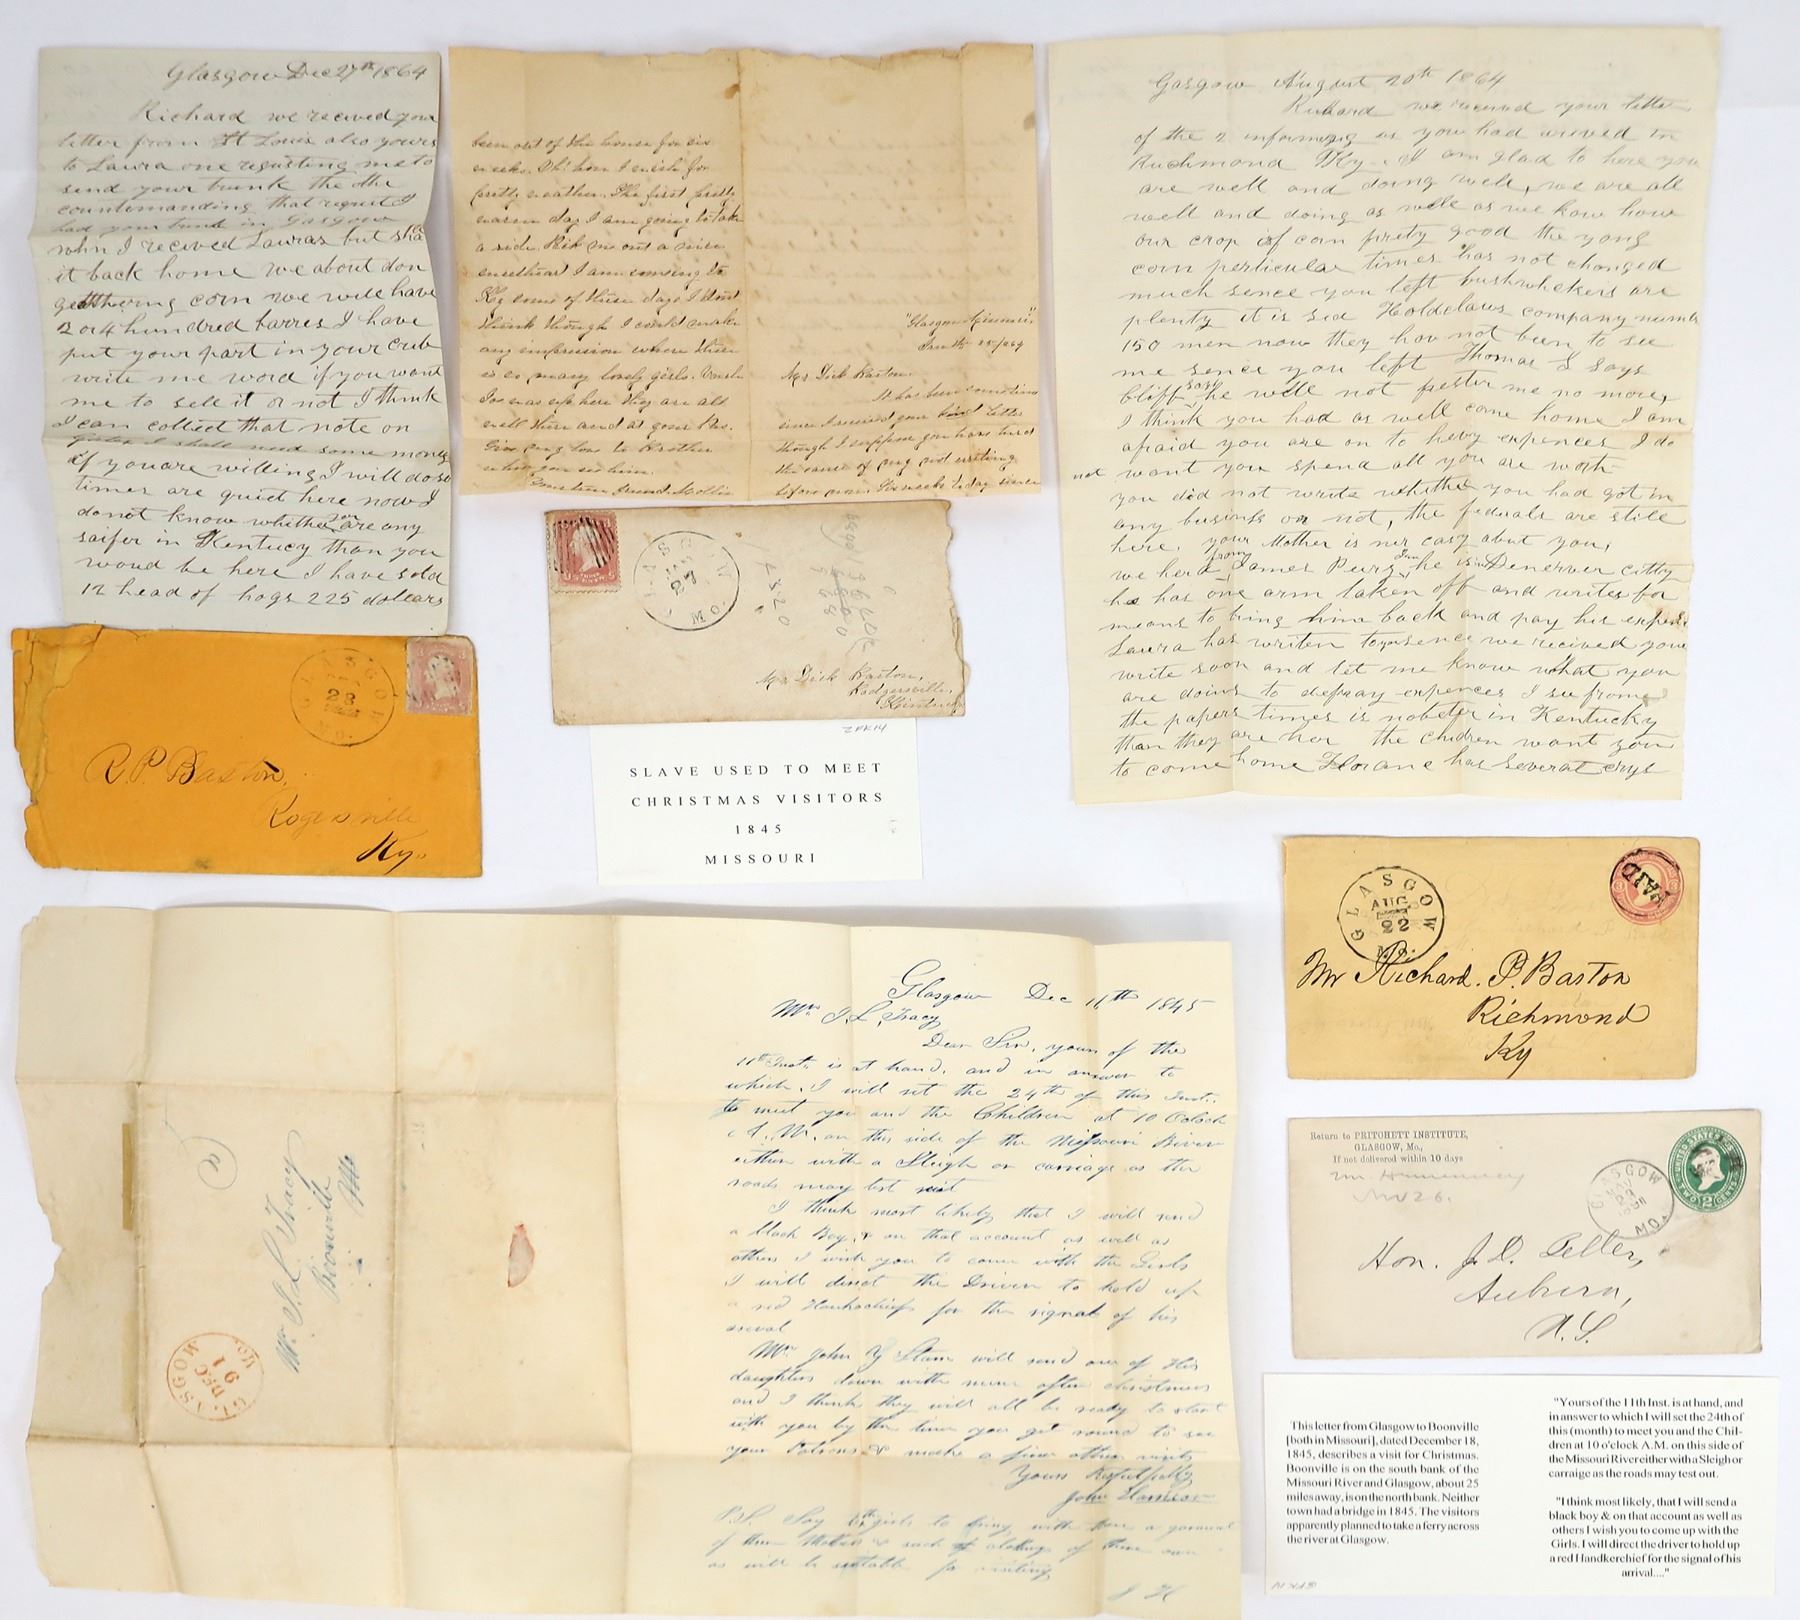 Glasgow Dec 27th 1864
Richard we recived your
letter from St Louis also yours
to Laura one requsting me to
send your trunk the othe
countimanding that requst I
had your trunk in Glasgow
whn I recived Lauras but
it back home we about don
gethering corn we will have
2 or 4 hundred barres I have
put your part in your crib
write me word if you want
me to sell it or not I think
I can collect that note on
I shall need some money
if you are willing I will do so
times are quiet here now I
do not know whither you are any
saifer in Kentucy than you
woud be here I have sold
12 head of hogs 225 dollars
been out of the house for six
weeks. Oh! how I wish for
pretty weather. The first pretty
warm day I am going to take
a ride. Pick me out a nice
sweetheart I am coming to
Ky some of these days I dont
think though I could make
any impression where there
is so many lovely girls.
they are all
well there and at your Pas.
Give my love to Brother
when you see him.
Your true friend Mollie
"Glasgow Missouri"
Mr Dick Baston.
It has been sometime
since I recived your kind letter
though I suppose you have heard
the cause of my not writing
before now. Six weeks to day since
Gasgow August 20th 1864
Richard we recived your letter
of the 2 informing us you had arived in
Richmond Ky. I am glad to here you
are well and doing well, we are all
well and doing as well as we know how
our crop of corn prety good the yong
corn perticular times has not changed
much sence you left bushwhekers are
plenty it is sed Holdclaws company numb
150 men now they hav not been to see
me sence you left Thomas S says
bliff says he will not pester me no more,
I think you had as well come home I am
afraid you are on to hevy expences I do
not want you spend all you are worth
you did not write whither you had got in
any business or not, the fedurals are still
here. your Mother is
we herd from James he is in Denerver citty
he has one arm taken off and writes for
means to bring him back and pay his expens
Laura has writen to you sence we recived your
write soon and let me know what you
are doing to defray expences I see from
the papers times is no beter in Kentucky
than they are her the children want you
to come home Florane has several crys
GLASGOW MO.
28
R. P. Baston,
Rogersville
Ky.
GLASGOW MO.
Mr Dick Baston,
Rodgersville,
Kentucky
ZPK14
SLAVE USED TO MEET
CHRISTMAS VISITORS
1845
MISSOURI
GLASGOW MO.
AUG
22
PAID
Mr Richard. P. Baston
Richmond
Ky
Glasgow Dec 18th 1845
Mr J. L. Tracy
Dear Sir, yours of the
11th Inst. is at hand, and in answer to
which, I will set the 24th of this Inst.
to meet you and the Children at 10 Oclock
A. M. on this side of the Missouri River
either with a Sleigh or carriage as the
roads may test out
I think most likely that I will send
a black Boy, & on that account as well as
others I wish you to come with the Girls
I will direct the Driver to hold up
a red Hankachief for the signal of his
arival
Mr John Y Slam will send one of His
daughters down with mine after christmas
and I think they will all be ready to start
with you by the time you get round to see
your Patrons & make a few other visits
Yours Respectfully
John Harrison
P.S. Say to the girls to bring with them a garment
of their Mothers & such of clothing of their own
as will be suitable for visiting
J H
Mr. J. L. Tracy
Boonville
Mo
GLASGOW Mo.
DEC
19
Return to PRITCHETT INSTITUTE,
GLASGOW, Mo.,
If not delivered within 10 days
Nov 26.
GLASGOW MO.
UNITED STATES
TWO 2 CENTS
Hon. J. D. Teller,
Auburn,
N. Y.
This letter from Glasgow to Boonville
[both in Missouri], dated December 18,
1845, describes a visit for Christmas.
Boonville is on the south bank of the
Missouri River and Glasgow, about 25
miles away, is on the north bank. Neither
town had a bridge in 1845. The visitors
apparently planned to take a ferry across
the river at Glasgow.
"Yours of the 11th Inst. is at hand, and
in answer to which I will set the 24th of
this (month) to meet you and the Chil-
dren at 10 o'clock A.M. on this side of
the Missouri River either with a Sleigh or
carraige as the roads may test out.
"I think most likely, that I will send a
black boy & on that account as well as
others I wish you to come up with the
Girls. I will direct the driver to hold up
a red Handkerchief for the signal of his
arrival...."